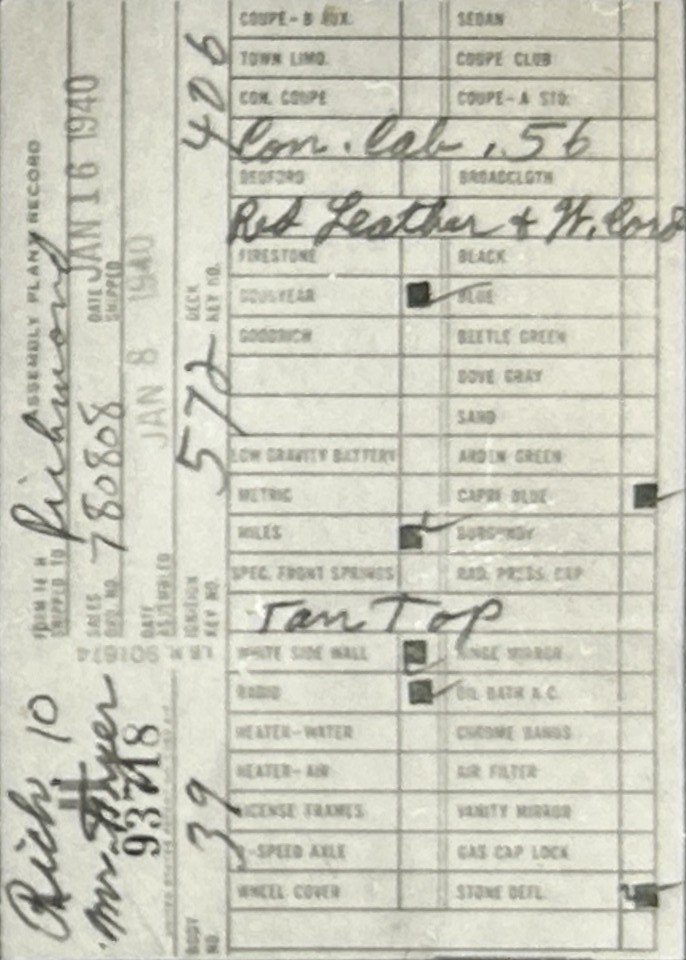 COUPE-B AUX. SEDAN
TOWN LIMO. COUPE CLUB
CON. COUPE COUPE-A STD.
Con. Cab. .56
BEDFORD BROADCLOTH
Red Leather & W. Cord
FIRESTONE BLACK
GOODYEAR BLUE
GOODRICH BEETLE GREEN
DOVE GRAY
SAND
LOW GRAVITY BATTERY ARDEN GREEN
METRIC CAPRI BLUE
MILES BURGUNDY
SPEC. FRONT SPRINGS RAD. PRESS. CAP
Tan Top
WHITE SIDE WALL HINGE MIRROR
RADIO OIL BATH A.C.
HEATER-WATER CHROME BANDS
HEATER-AIR AIR FILTER
LICENSE FRAMES VANITY MIRROR
2-SPEED AXLE GAS CAP LOCK
WHEEL COVER STONE DEFL.
ASSEMBLY PLANT RECORD
SHIPPED TO Richmond
SALES ORD. NO. 780808 DATE SHIPPED JAN 16 1940
DATE ASSEMBLED JAN 8 1940
IGNITION KEY NO. 572 DECK KEY NO. 406
Rich 10
93718
BODY NO. 39